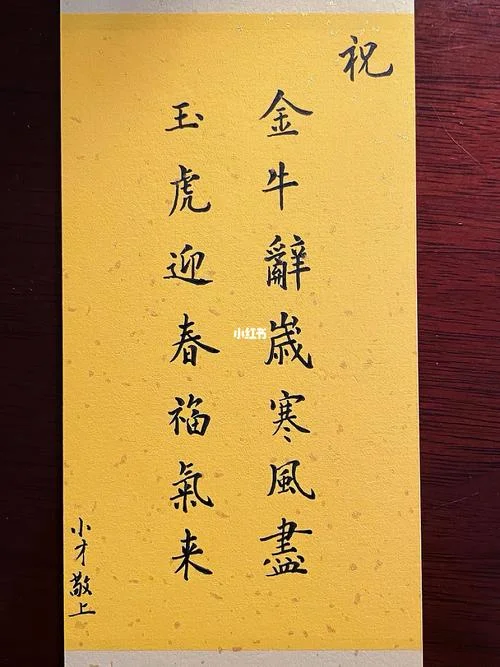 祝
金牛辭歲寒風盡
玉虎迎春福氣来
小才敬上
小红书